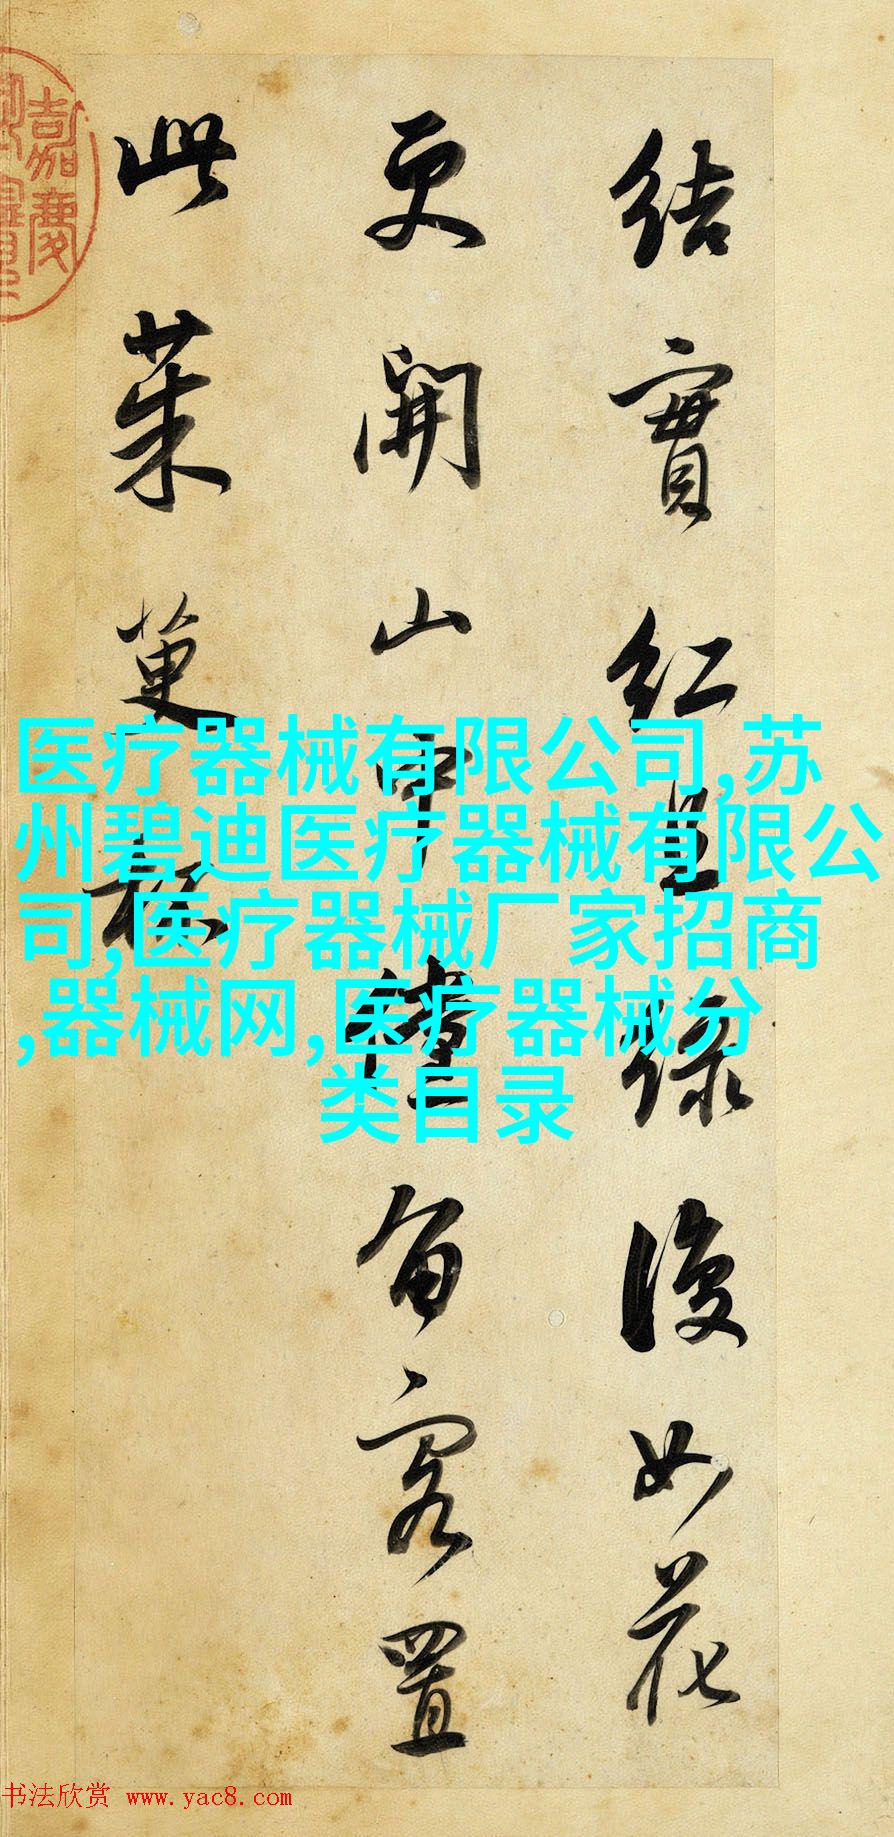 結實紅且綠復如花
更開山中儻留客置
此茱萸杯
嘉慶
医疗器械有限公司,苏
州碧迪医疗器械有限公
司,医疗器械厂家招商
,器械网,医疗器械分
类目录
书法欣赏 www.yac8.com